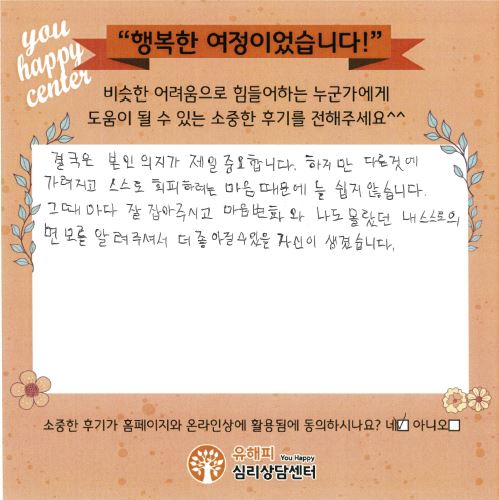 you
happy
center
“행복한 여정이었습니다!”
비슷한 어려움으로 힘들어하는 누군가에게
도움이 될 수 있는 소중한 후기를 전해주세요^^
결국은 본인 의지가 제일 중요합니다. 하지만 다른것에
가려지고 스스로 회피하려는 마음 때문에 늘 쉽지 않습니다.
그때마다 잘 잡아주시고 마음변화와 나도 몰랐던 내 스스로의
면모를 알려주셔서 더 좋아질수있을 자신이 생겼습니다.
소중한 후기가 홈페이지와 온라인상에 활용됨에 동의하시나요? 네☑ 아니오☐
유해피 You Happy
심리상담센터